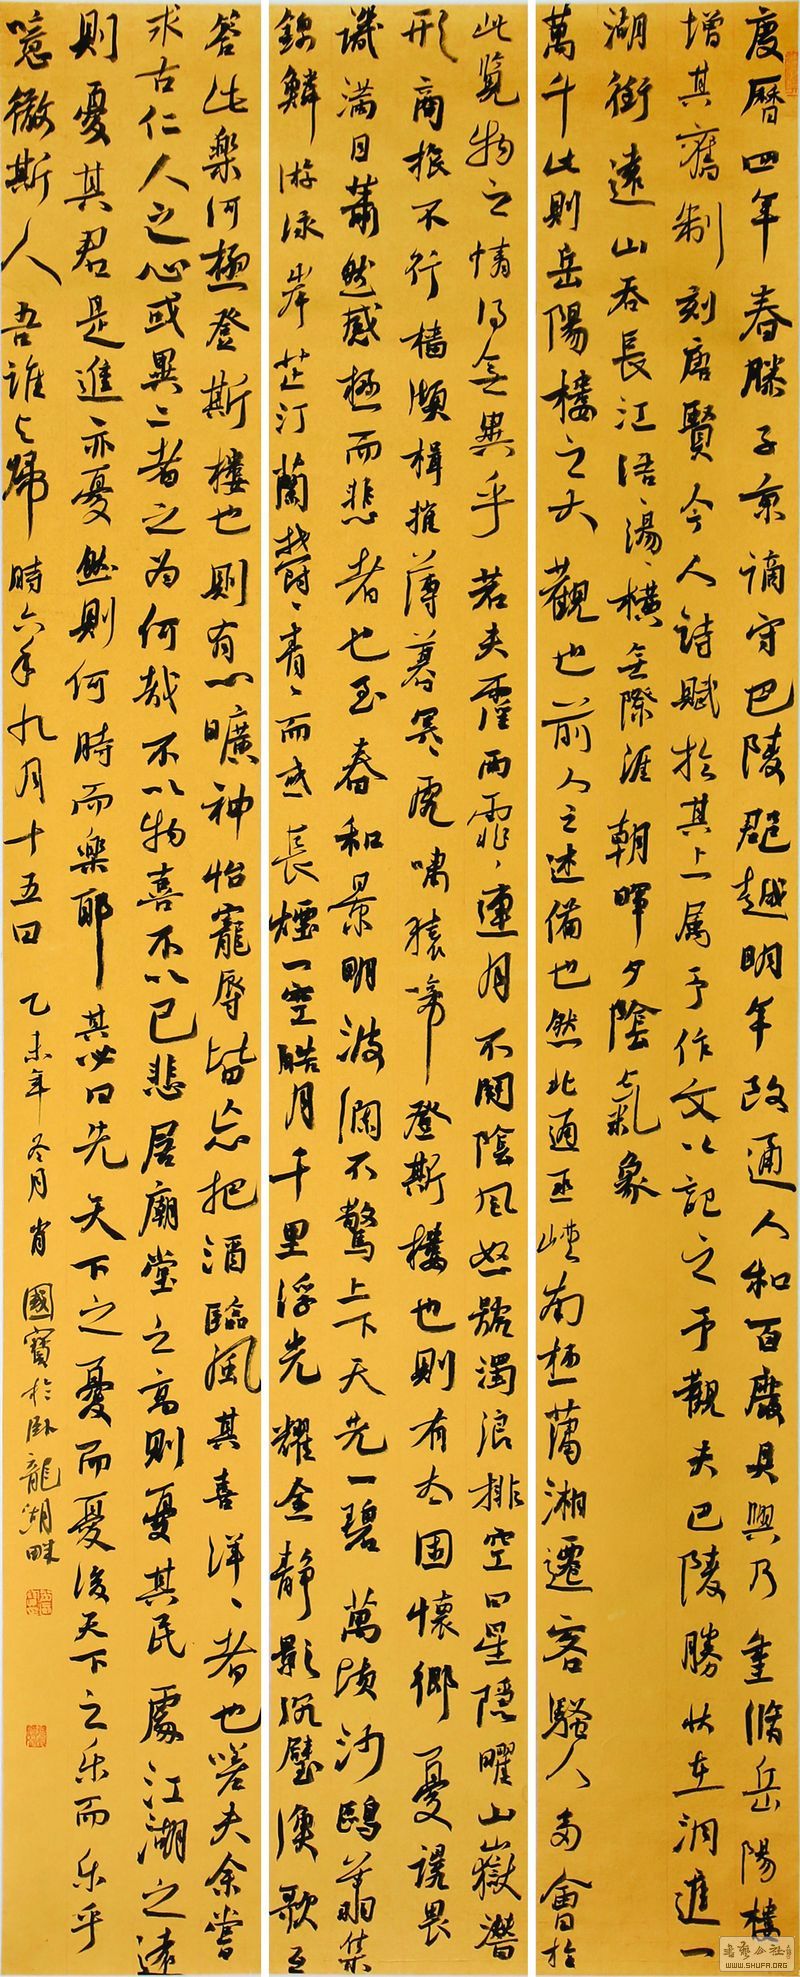 慶曆四年春滕子京謫守巴陵郡越明年政通人和百廢具興乃重修岳陽樓
增其舊制刻唐賢今人詩賦於其上屬予作文以記之予觀夫巴陵勝狀在洞庭一
湖銜遠山吞長江浩湯湯橫無際涯朝暉夕陰氣象
萬千此則岳陽樓之大觀也前人之述備也然北通巫峽南極瀟湘遷客騷人多會於
此覽物之情得無異乎若夫霪雨霏霏連月不開陰風怒號濁浪排空日星隱曜山嶽潛
形商旅不行檣傾楫摧薄暮冥冥虎嘯猿啼登斯樓也則有去國懷鄉憂讒畏
譏滿目蕭然感極而悲者也至春和景明波瀾不驚上下天光一碧萬頃沙鷗翔集
錦鱗游泳岸芷汀蘭鬱鬱青青而或長煙一空皓月千里浮光耀金靜影沉璧漁歌互
答此樂何極登斯樓也則有心曠神怡寵辱皆忘把酒臨風其喜洋洋者也嗟夫余嘗
求古仁人之心或異二者之為何哉不以物喜不以己悲居廟堂之高則憂其民處江湖之遠
則憂其君是進亦憂然則何時而樂耶其必曰先天下之憂而憂後天下之乐而乐乎
噫微斯人吾誰與歸時六年九月十五日 乙未年冬月肖國寶於臥龍湖畔
書藝公社
WWW.SHUFA.ORG